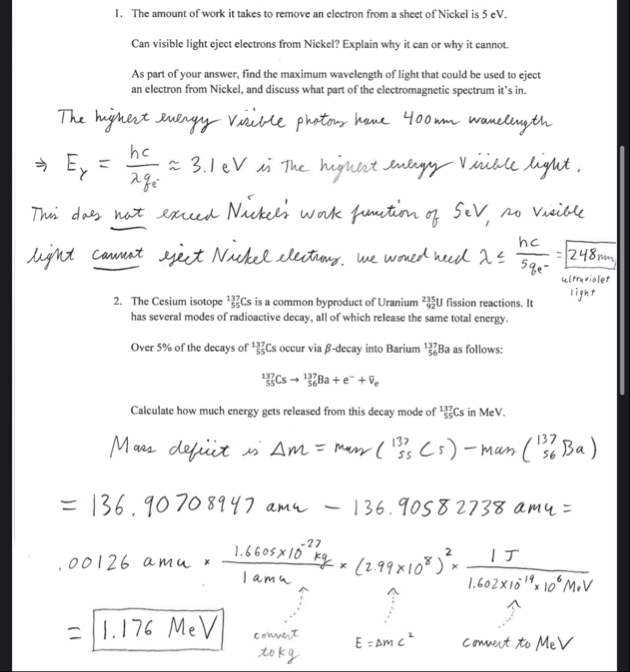 1. The amount of work it takes to remove an electron from a sheet of Nickel is 5 eV.
Can visible light eject electrons from Nickel? Explain why it can or why it cannot.
As part of your answer, find the maximum wavelength of light that could be used to eject
an electron from Nickel, and discuss what part of the electromagnetic spectrum it's in.
The highest energy visible photons have 400nm wavelength
⇒ Eᵧ = hc / λqₑ- ≈ 3.1 eV is the highest energy visible light.
This does not exceed Nickel's work function of 5eV, so visible
light cannot eject Nickel electrons. we would need λ ≤ hc / 5qₑ- = 248nm
ultraviolet
light
2. The Cesium isotope ¹³⁷₅₅Cs is a common byproduct of Uranium ²³⁵₉₂U fission reactions. It
has several modes of radioactive decay, all of which release the same total energy.
Over 5% of the decays of ¹³⁷₅₅Cs occur via β-decay into Barium ¹³⁷₅₆Ba as follows:
¹³⁷₅₅Cs → ¹³⁷₅₆Ba + e⁻ + ν̄ₑ
Calculate how much energy gets released from this decay mode of ¹³⁷₅₅Cs in MeV.
Mass deficit is Δm = mass (¹³⁷₅₅Cs) - mass (¹³⁷₅₆Ba)
= 136.90708947 amu - 136.90582738 amu =
.00126 amu × 1.6605×10⁻²⁷ kg / 1 amu × (2.99×10⁸)² × 1 J / 1.602×10⁻¹⁹ × 10⁶ MeV
= 1.176 MeV
convert
to kg
E = Δmc²
convert to MeV